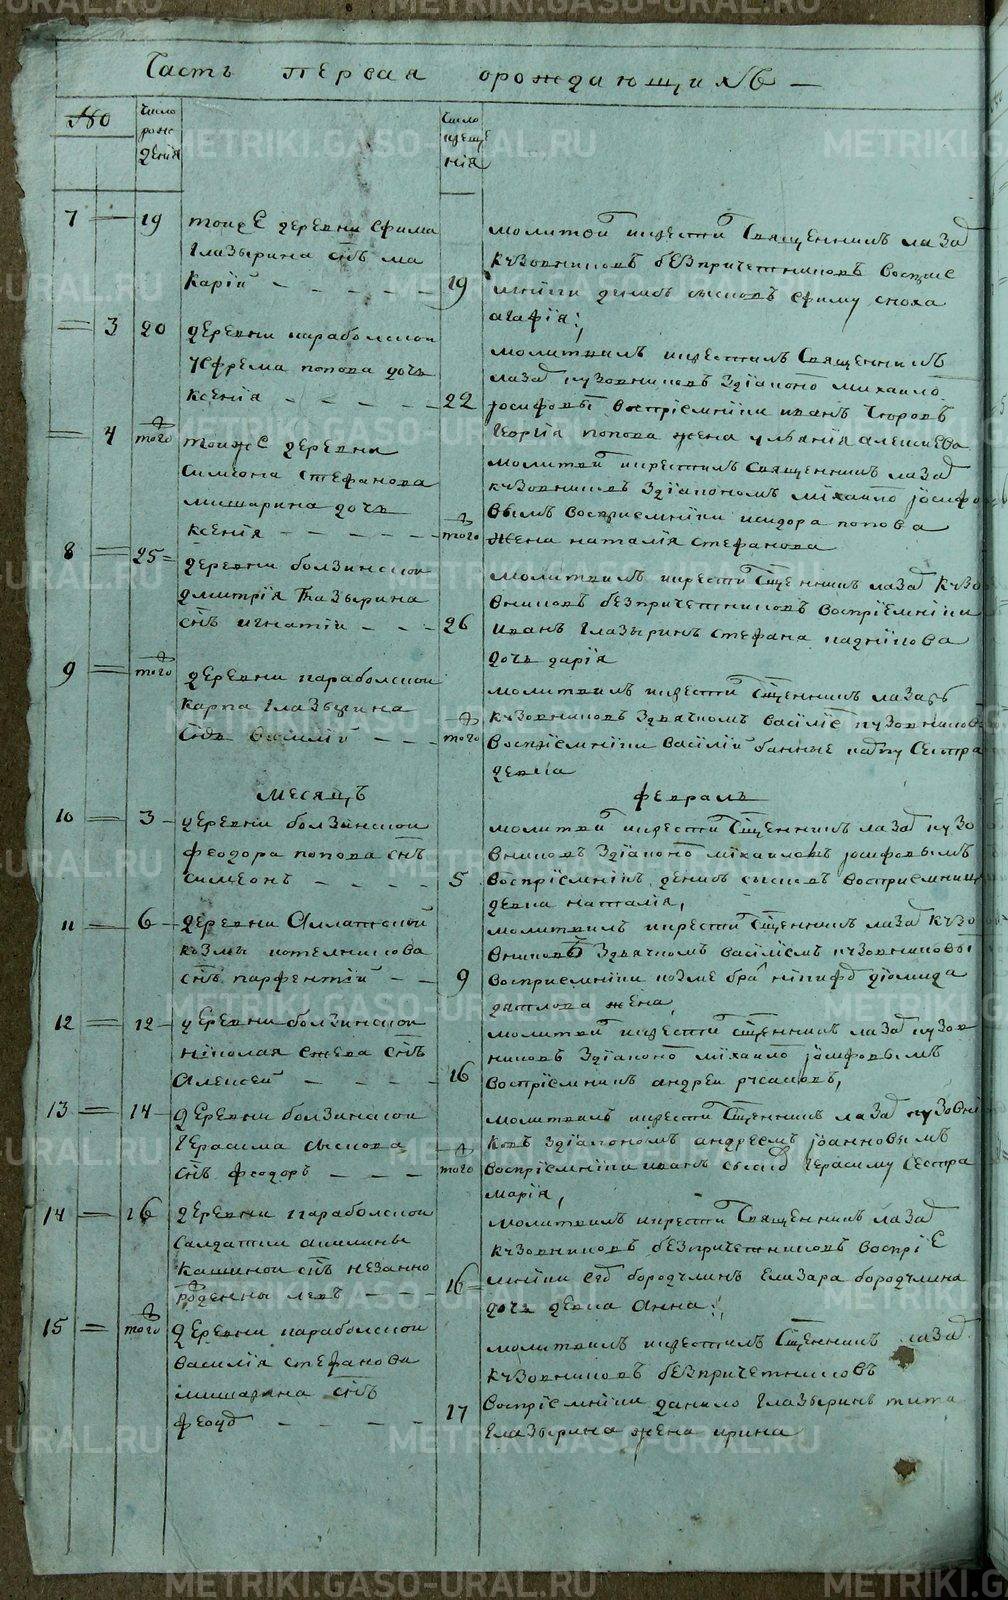 Часть первая о рождающихъ
№
Число рождения
Число крещения
7 19
тоиже деревни Ефима
Глазырина снъ ма
карий
19
молитвои крестил Священникъ лазар
кузовниковъ безпричетниковъ восприе
мники денисъ сысковъ Ефиму сноха
агафія
3 20
деревни параболской
Ефрема попова дочь
ксенія
22
молитвилъ крестилъ Священникъ
лазар кузовниковъ здіаконо михаило
іосифовы воспріемники иванъ
Георгія попова жена ульянія алексиева
4 того
тоиже деревни
симеона стефанова
мишарина дочь
ксенія
того
молитвил крестилъ священникъ лазар
кузовниковъ здіакономъ міхаило іосифо
вымъ восприемники исидора попова
жена наталія стефанова
8 25
деревни болзинской
димитрія Глазырина
снъ игнатіи
26
молитвилъ крести Сщенникъ лазар кузо
вниковъ безпричетниковъ воспріемники
иванъ Глазыринъ стефана
дочь дарія
9 того
деревни параболской
карпа Глазырина
снъ василий
того
молитвилъ крестил Сщенникъ лазарь
кузовниковъ здьячкомъ василіе кузовников
воспріемники василій сестра
девка
месяцъ февраль
10 3
деревни болзинской
феодора попова снъ
симеонъ
5
молитвил крестил Сщенникъ лазар кузо
вниковъ здіаконо міхаиломъ іосифовымъ
воспріемникъ денисъ сысковъ восприемница
девка наталія,
11 6
деревни
козмы котелникова
снъ парфентій
9
молитвилъ крестил Сщенникъ лазар кузо
вниковъ здьячкомъ василіемъ кузовниковы
восприемники козме бра діомида
дятлова жена
12 12
деревни болзинской
николая ежева снъ
Алексей
16
молитвил крестил сщенникъ лазар кузов
никовъ здіаконо міхаило іосифовымъ
воспріемникъ андреи русаковъ,
13 14
деревни болзинской
Герасима сыскова
снъ феодоръ
того
молитвилъ крестил Сщенникъ лазар кузовни
ковъ здіакономъ андреемъ іоанновымъ
воспріемники иванъ Герасиму сестра
марія,
14 16
деревни параболской
салдатки акилины
кашиной снъ незакно
рожденны левъ
16
молитвилъ крестил Священникъ лазар
кузовниковъ безпричетниковъ воспріе
мники бородулинъ Елизара бородулина
дочь девка анна
15 того
деревни параболской
василія стефанова
мишарина снъ
феодр
17
молитвилъ крестилъ Сщенникъ лазар
кузовниковъ безпричетниковъ
воспріемники данило Глазыринъ тита
Глазырина жена ирина
METRIKI.GASO-URAL.RU